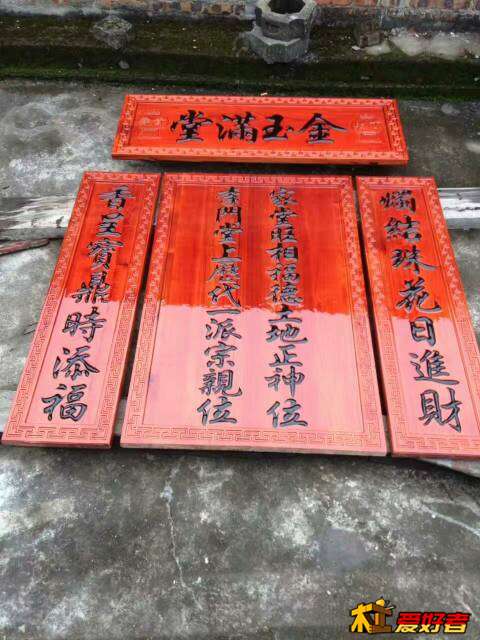 金玉滿堂
結珠花日進財
家堂旺相福德土地正神位
門堂上歷代一派宗親位
香呈寶鼎時添福
木工爱好者